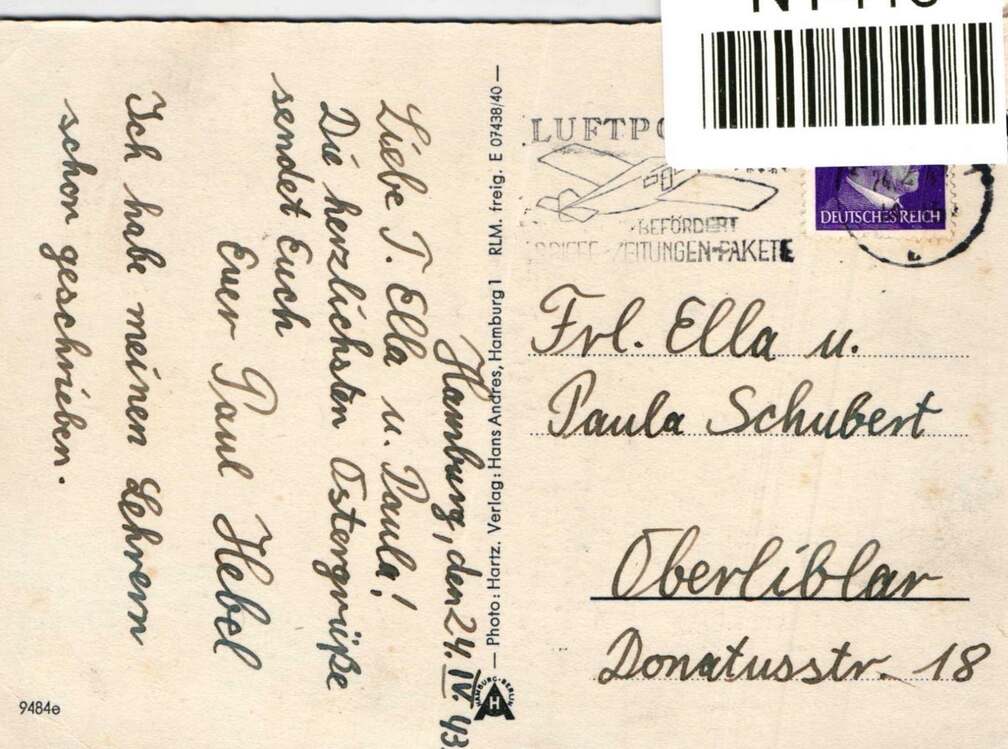 Hamburg, den 24. IV. 43.
Liebe T. Ella u. Paula!
Die herzlichsten Ostergrüße
sendet Euch
Euer Paul Hebel
Ich habe meinen Lehrern
schon geschrieben.
9484e
— Photo: Hartz. Verlag: Hans Andres, Hamburg 1 RLM. freig. E 07438/40 —
HAMBURG-BERLIN
H
BEFÖRDERT
ZEITUNGEN-PAKETE
DEUTSCHES REICH
Frl. Ella u.
Paula Schubert
Oberliblar
Donatusstr. 18